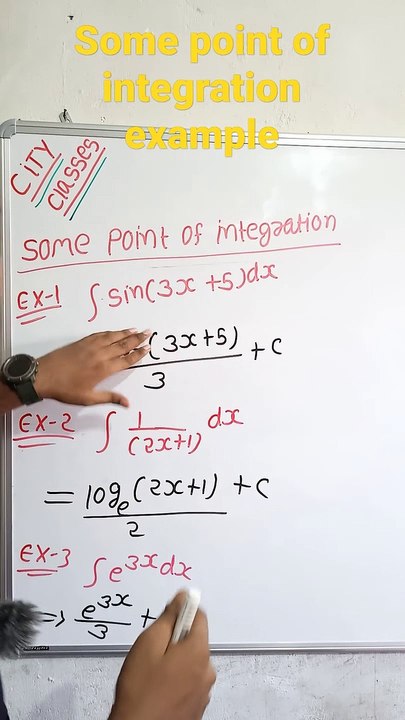 Some point of
integration
example
CITY
Classes
Some Point of integration
Ex-1 ∫sin(3x+5)dx
(3x+5)/3 + c
Ex-2 ∫ 1/(2x+1) dx
= logₑ(2x+1)/2 + c
Ex-3 ∫e³ˣdx
=> e³ˣ/3 +